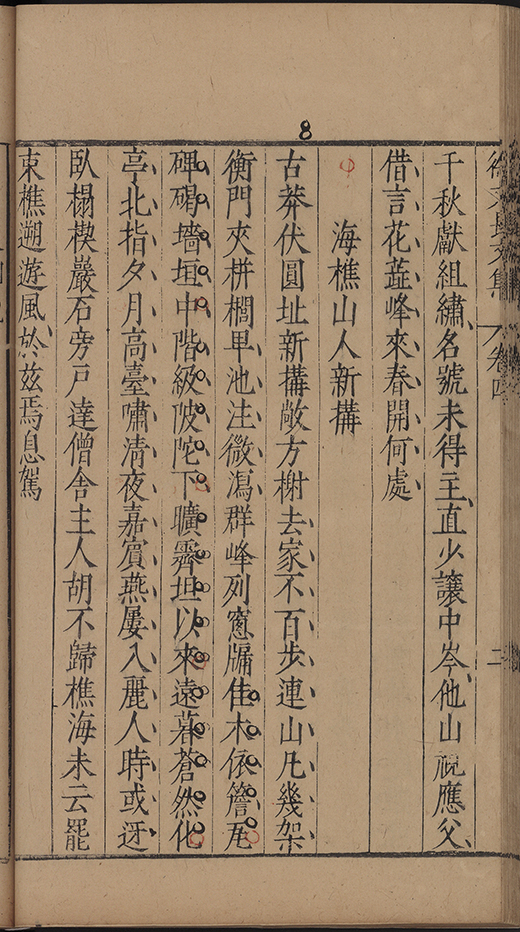 8
文長文集
卷四
二
千秋獻組繡名號未得主直少讓中岑他山視應父
借言花蕋峰來春開何處
海樵山人新搆
古莽伏圓址新搆敞方榭去家不百步連山凡幾架
衡門夾栟櫚旱池注微瀉群峰列窻牖佳木依簷瓦
碑碣墻垣中階級陂陀下曠霽坦以來遠暮蒼然化
亭北指夕月高臺嘯清夜嘉賓燕屢入麗人時或迓
臥榻楔巖石旁戸達僧舍主人胡不歸樵海未云罷
束樵遡遊風於兹焉息駕